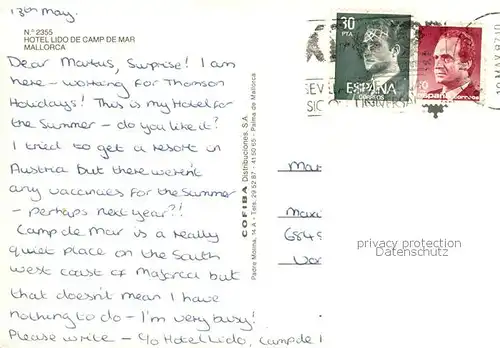 13th May.
N.° 2355
HOTEL LIDO DE CAMP DE MAR
MALLORCA
Dear Markus, Surprise! I am
here - working for Thomson
Holidays! This is my Hotel for
the Summer - do you like it?
I tried to get a resort in
Austria but there weren't
any vacancies for the Summer
- perhaps next year?!
Camp de Mar is a really
quiet place on the South
west coast of Majorca but
that doesn't mean I have
nothing to do - I'm very busy!
Please write - c/o Hotel Lido, Camp de
COFIBA Distribuciones, S.A.
Padre Molina, 14 A - Tels. 29 52 87 - 41 50 65 - Palma de Mallorca
30
PTA
ESPAÑA
CORREOS
España correos
SEV
SIC
MAY.87.10
Mar
Maxi
684
privacy protection
Datenschutz